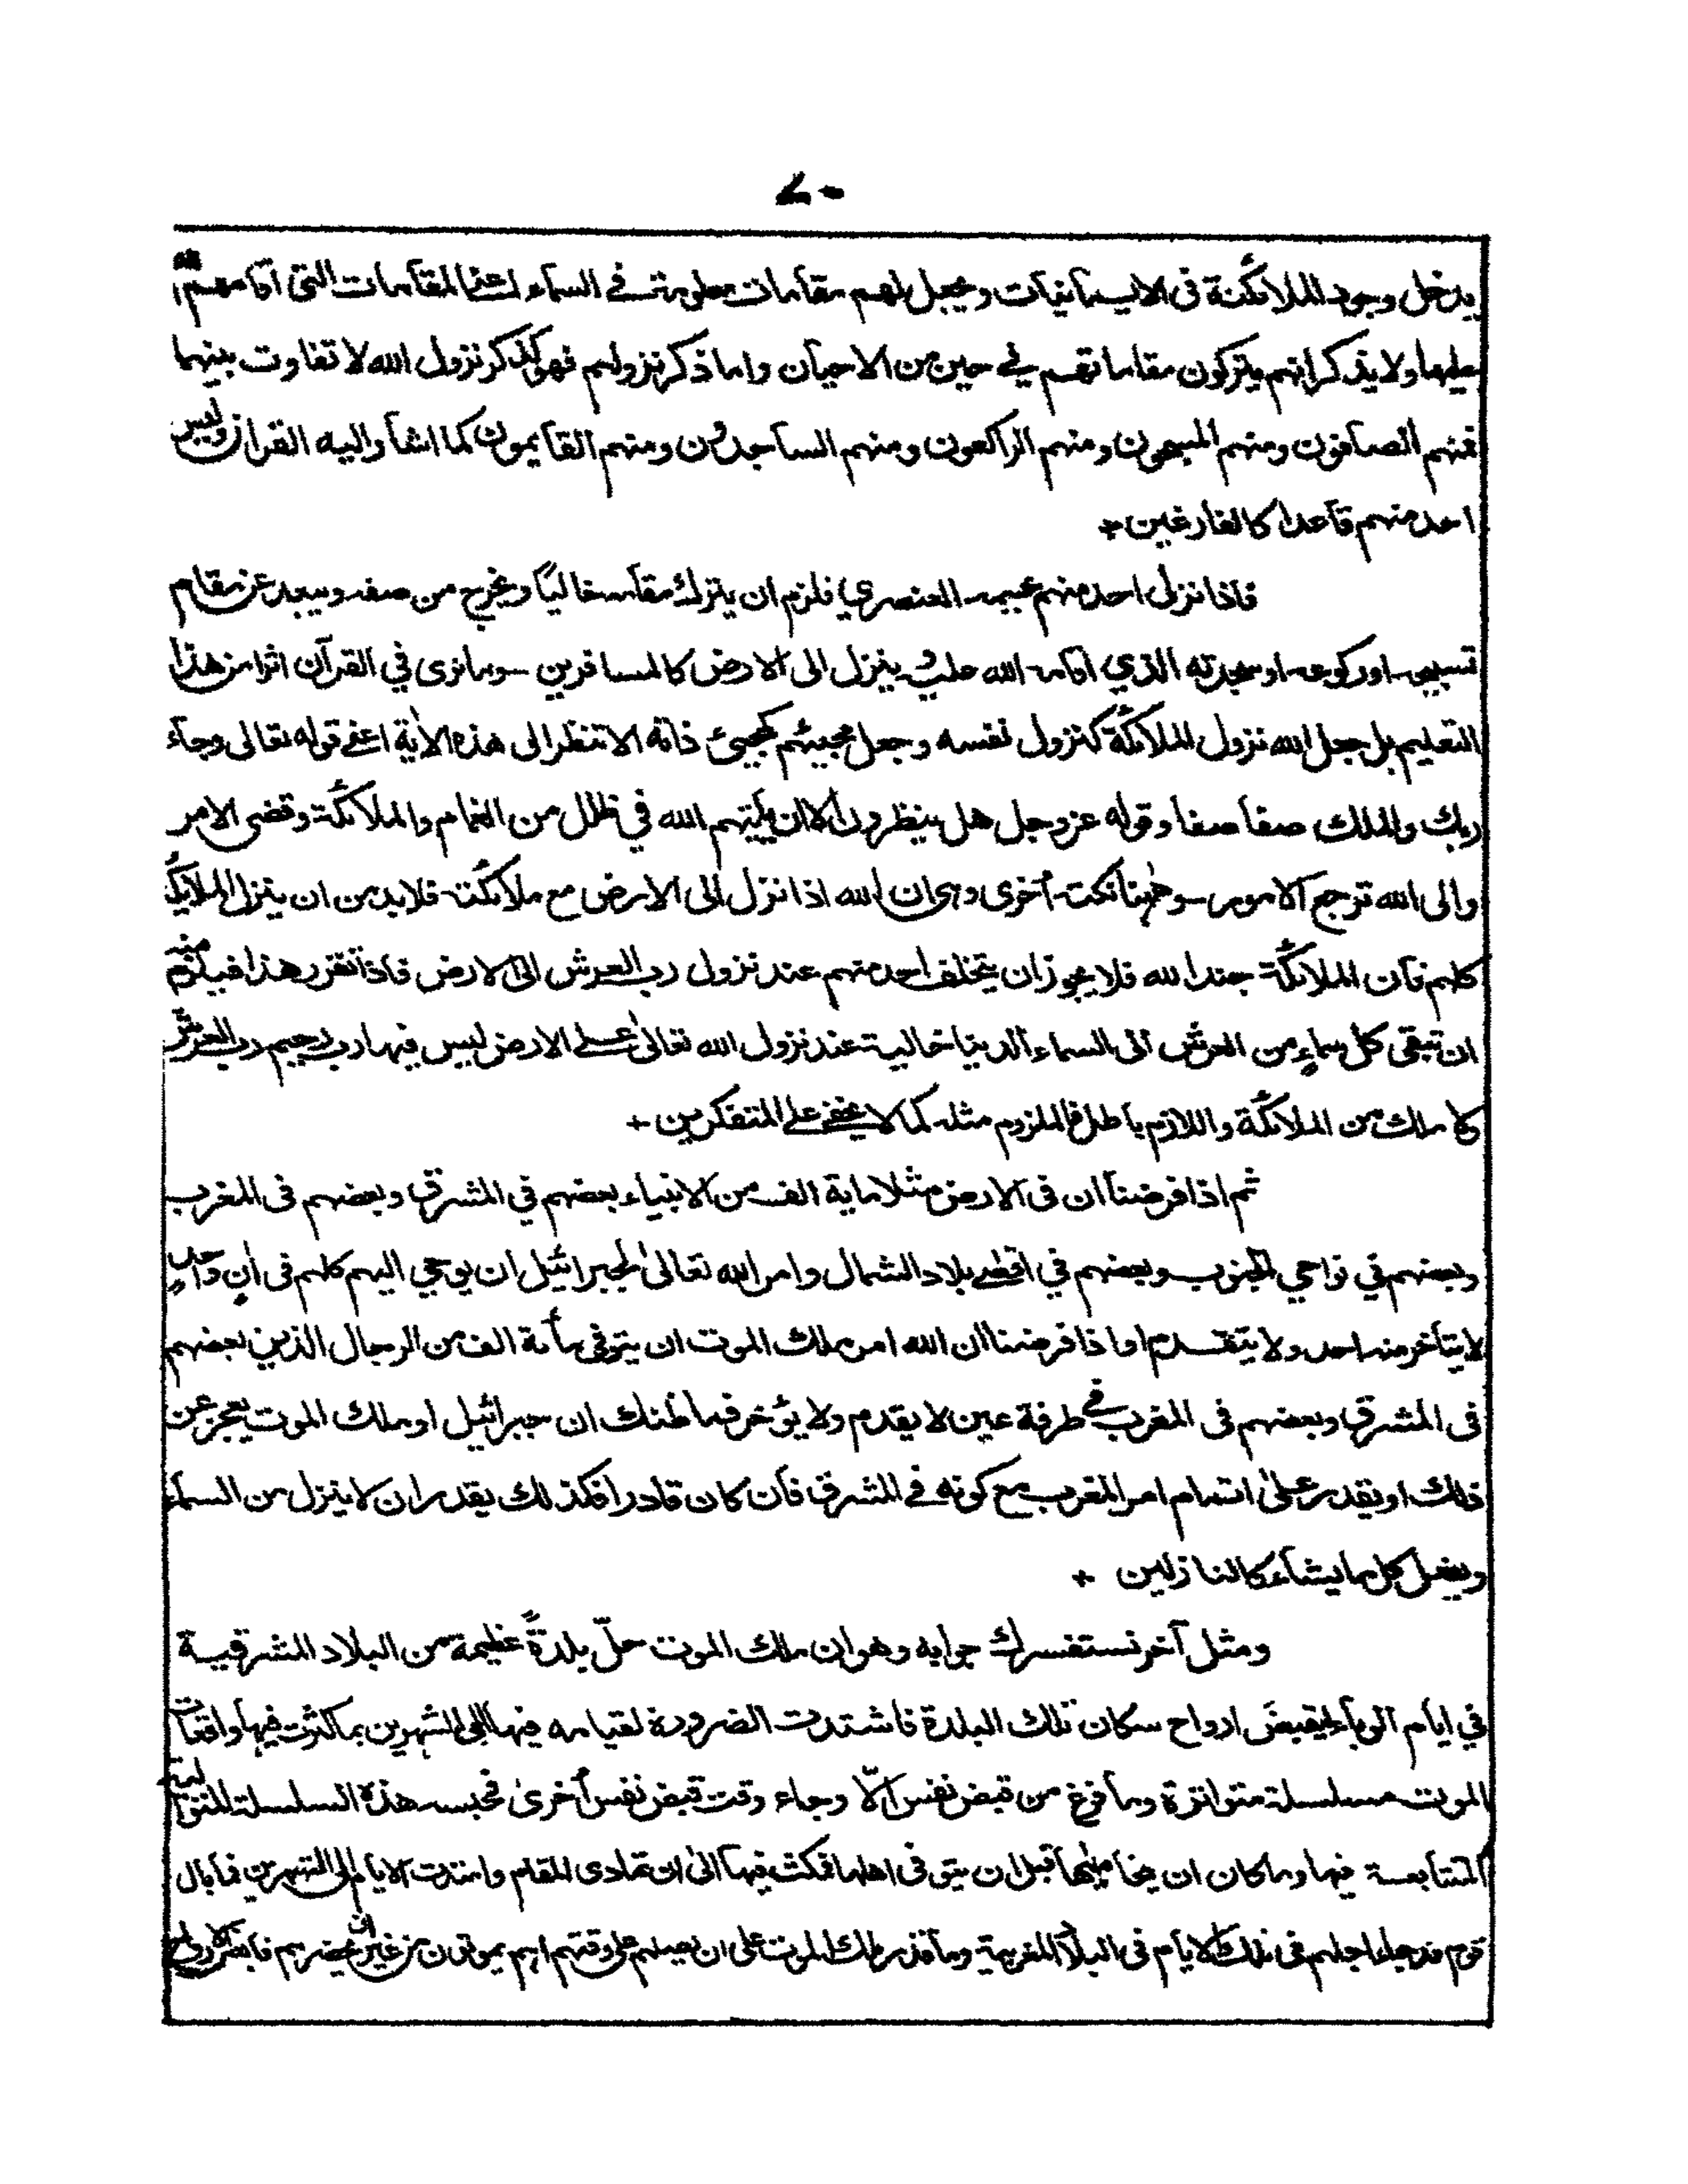 ٧٠
يدخل وجود الملائكة فى الايمانيات ويجعل لهم مقامات معلومة فى السماء المقامات التى اقامهم الله
عليها ولا يذكر انهم يتركون مقاماتهم في حين من الاحيان واما ذكر نزولهم فهو كذكر نزول الله لا تفاوت بينهما
فمنهم الصافون ومنهم المسبحون ومنهم الراكعون ومنهم الساجدون ومنهم القايمون كما اشار اليه القران وليس
احد منهم قاعدا كالفارغين +
فاذا نزل احد منهم بجسمه العنصري فلزم ان يترك مقامه خاليًا ويخرج من صفه ويبعد عن مقام
تسبيحه او ركوعه او سجدته الذي اقامه الله عليه وينزل الى الارض كالمسافرين وما نرى في القرآن اثرا من هذا
التعليم بل جعل الله نزول الملائكة كنزول نفسه وجعل مجيئهم كمجيئ ذاته الا تنظر الى هذه الاية اعنى قوله تعالى وجاء
ربك والملك صفا صفا وقوله عزوجل هل ينظرون الا ان ياتيهم الله في ظلل من الغمام والملائكة وقضى الامر
والى الله ترجع الامور وههنا نكتة أخرى وهى ان الله اذا نزل الى الارض مع ملائكته فلا بد من ان ينزل الملائكة
كلهم فان الملائكة جند الله فلا يجوز ان يتخلف احد منهم عند نزول رب العرش الى الارض فاذا تقرر هذا فيلزم منه
ان تبقى كل سماءٍ من العرش الى السماء الدنيا خالية عند نزول الله تعالى على الارض ليس فيها رب رحيم رب العرش
ولا ملك من الملائكة واللازم باطل فالملزوم مثله كما لا يخفى على المتفكرين +
ثم اذا فرضنا ان فى الارض مثلا ماية الف من الانبياء بعضهم في المشرق وبعضهم فى المغرب
وبعضهم في نواحي الجنوب وبعضهم في اقصى بلاد الشمال وامر الله تعالى لجبرائيل ان يوحي اليهم كلهم فى اٰنٍ واحدٍ
لا يتأخر منه احد ولا يتقدم او اذا فرضنا ان الله امر ملك الموت ان يتوفى مأئة الف من الرجال الذين بعضهم
فى المشرق وبعضهم فى المغرب في طرفة عين لا يقدم ولا يؤخر فما ظنك ان جبرائيل او ملك الموت يعجز عن
ذلك او يقدر على اتمام امر المغرب مع كونه في المشرق فان كان قادرا فكذلك يقدر ان لا ينزل من السماء
ويفعل كل ما يشاء كالنازلين +
ومثل آخر نستفسرك جوابه وهو ان ملك الموت حلّ بلدةً عظيمة من البلاد المشرقية
في ايام الوباء ليقبض ارواح سكان تلك البلدة فاشتدت الضرورة لقيامه فيها الى الشهرين بما كثرت فيها واقعات
الموت مسلسلة متواترة وما فرغ من قبض نفس الّا وجاء وقت قبض نفس أخرى فحبسه هذه السلسلة المتوالية
المتتابعة فيها وما كان ان قبل ان يتوفى اهلها فمكث فيها الى ان تمادى المقام وامتدت الايام الى الشهرين فما بال
قوم قد جاء اجلهم فى تلك الايام فى البلاد المغربية وما قدر ملك الموت على ان يصلهم على وقتهم اهم يموتون من غير ان يحضرهم قابض الارواح